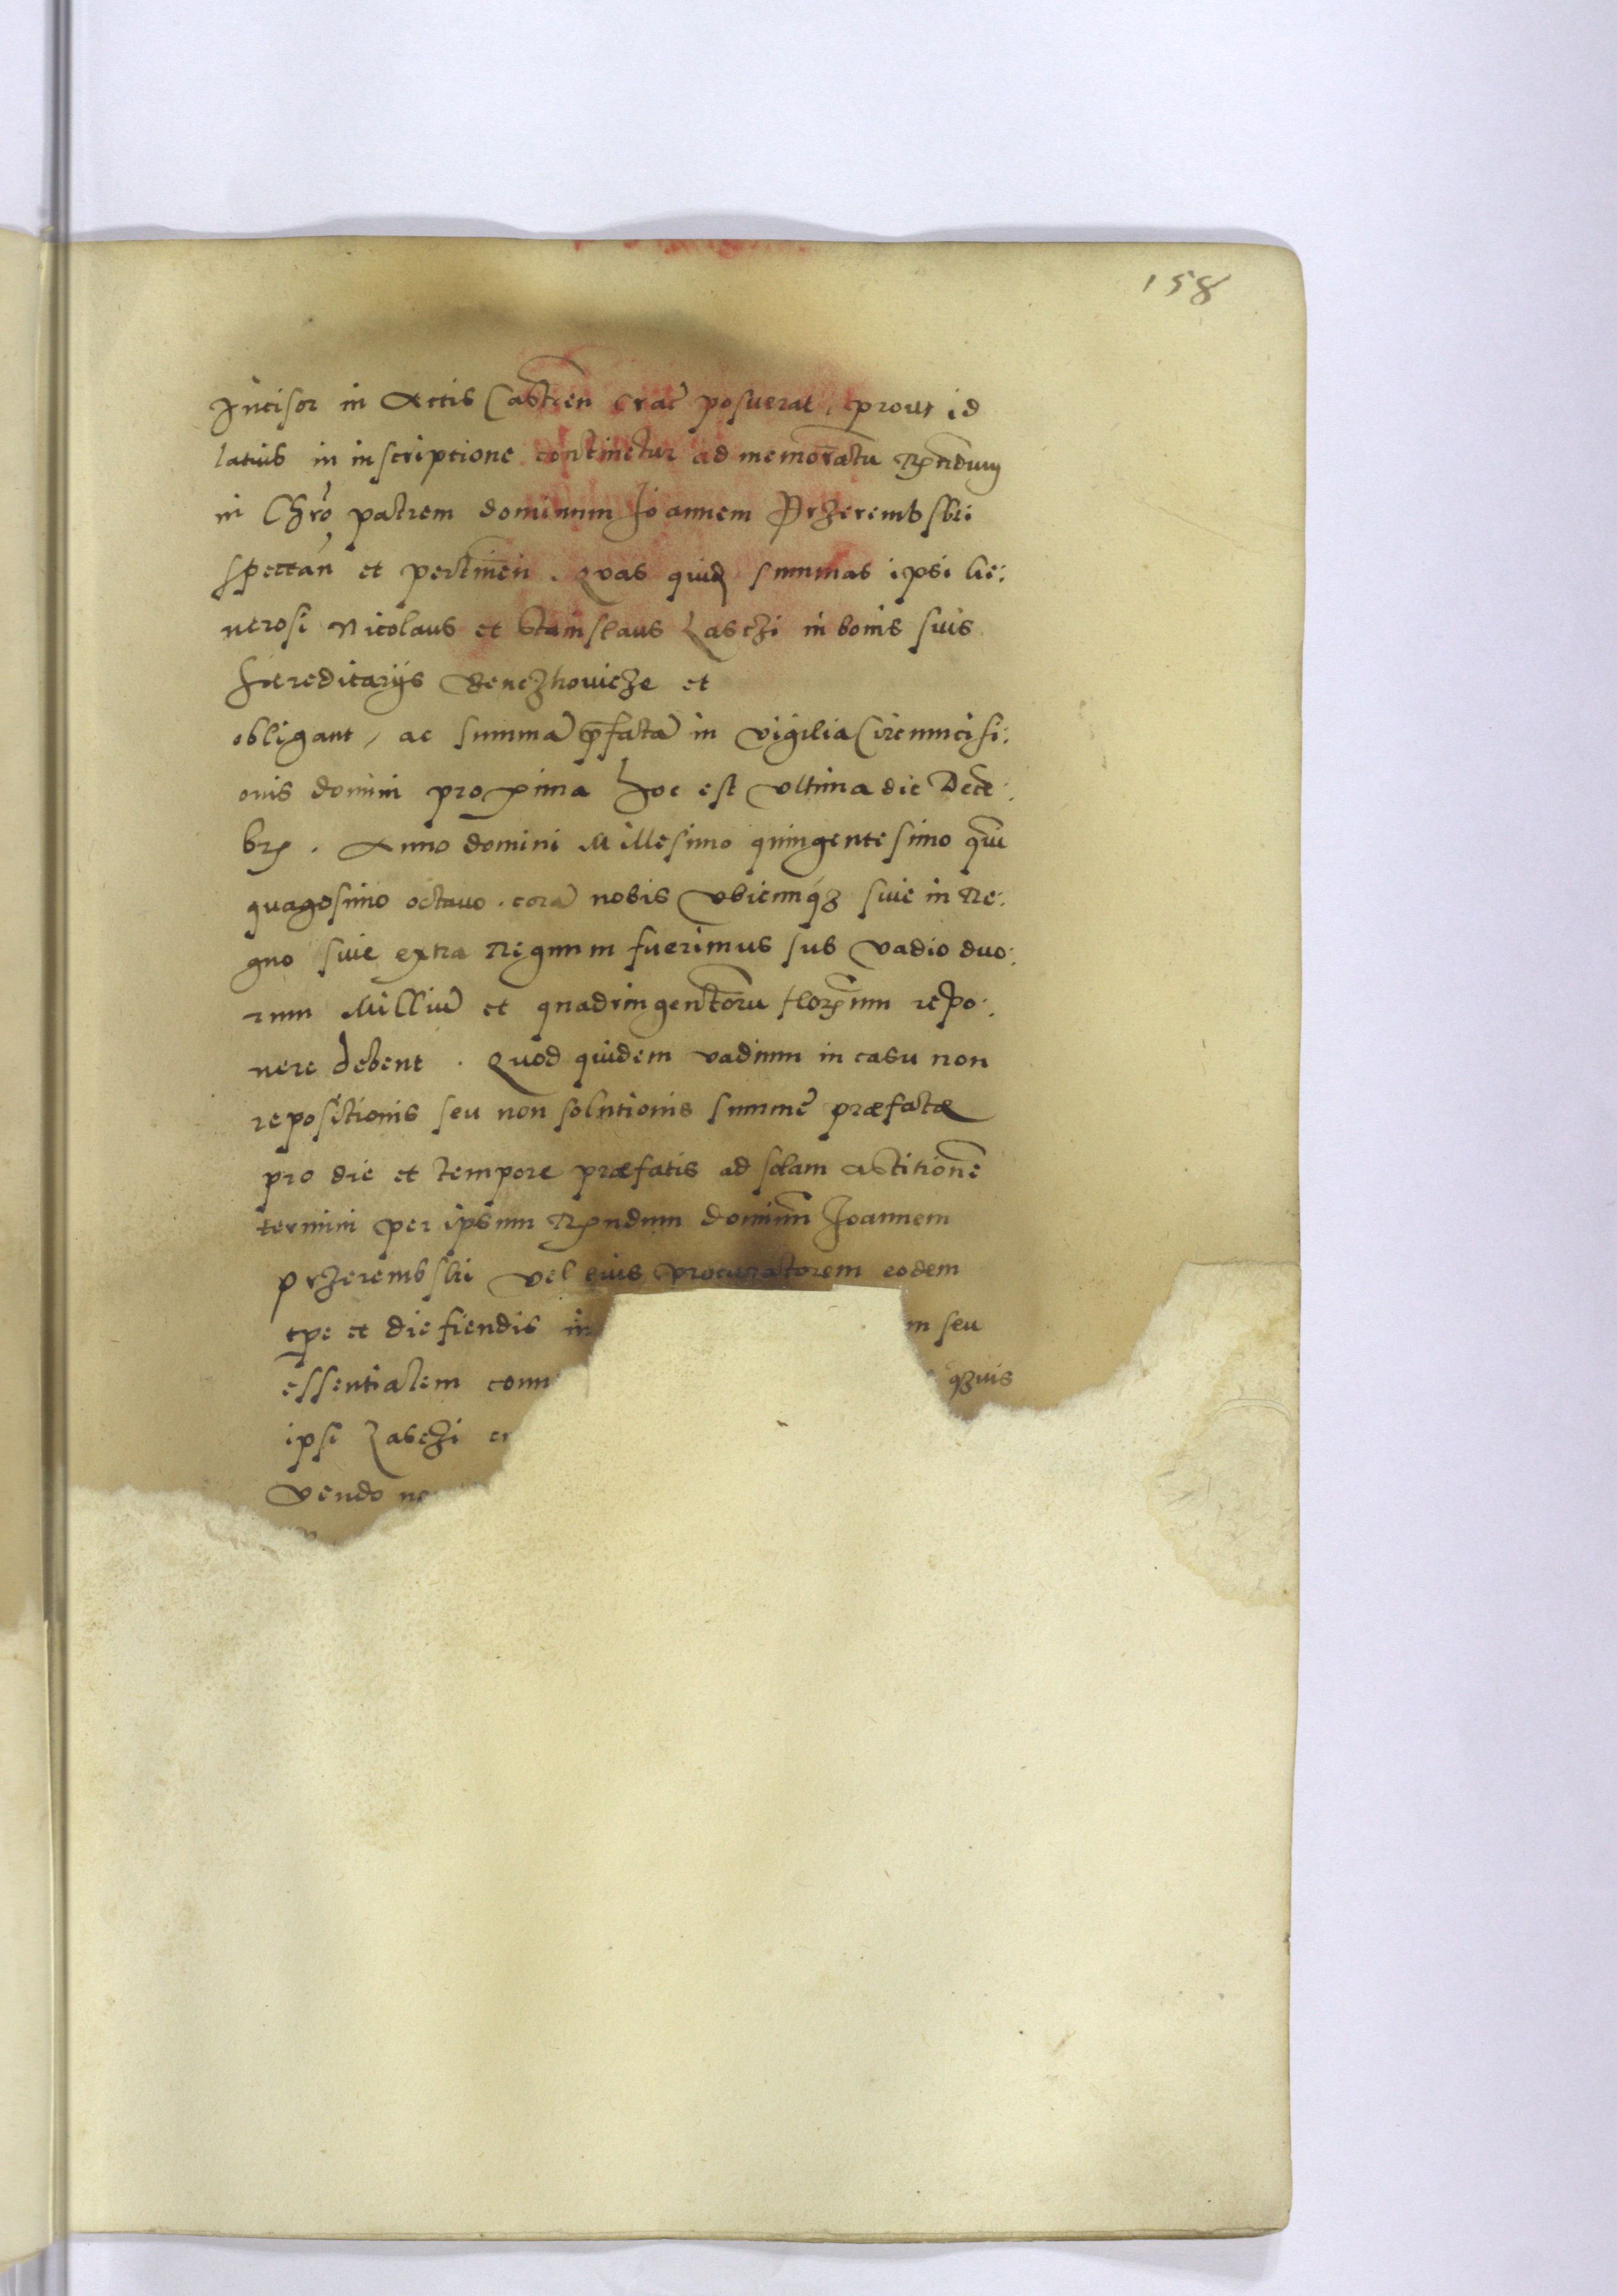 158
Incisor in Actis Castren̄ Crac̄ posuerat, prout id
latius in inscriptione continetur ad memoratū Rn̄dum
in Chrō patrem dominum Joannem Przerembski
spectan̄ et pertinen̄. Quas quid summas ipsi Ge:
nerosi Nicolaus et Stanislaus Laschi in bonis suis
hereditarijs et
obligant, ac summā p̄fatā in vigilia Circumcisi:
onis domini proxima hoc est ultima die Decē:
br. Anno domini Millesimo quingentesimo quī
quagesimo octauo. corā nobis vbicunq̨ siue in Re:
gno siue extra Regnum fuerimus sub vadio duo:
rum Milliū et quadringentorū florenum repo:
nere debent. Quod quidem vadium in casu non
repositionis seu non solutionis summę præfatæ
pro die et tempore præfatis ad solam astitionē
termini per ipsum Rn̄dum dominū Joannem
przerembski vel eius procuratorem eodem
tpe et die fiendis in m seu
essentialem qzuis
ipsi Laschi
vendo